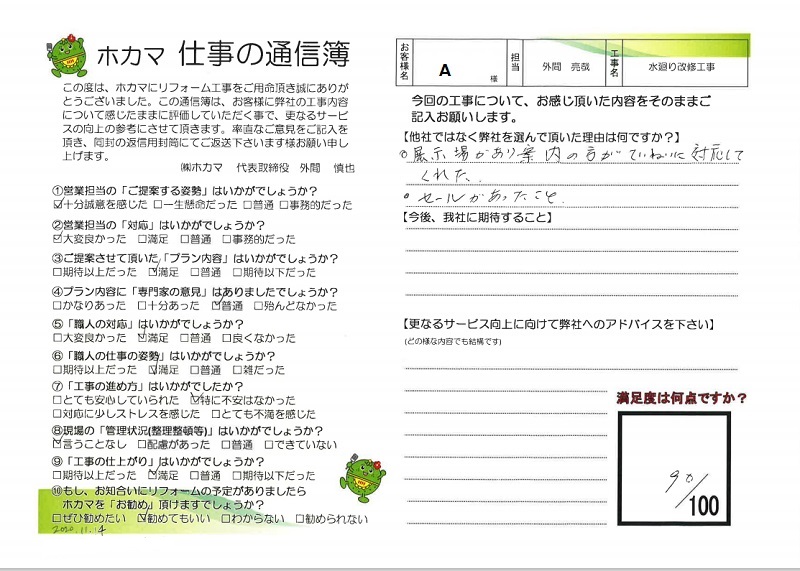 ホカマ 仕事の通信簿
この度は、ホカマにリフォーム工事をご用命頂き誠にありが
とうございました。この通信簿は、お客様に弊社の工事内容
について感じたままに評価していただく事で、更なるサービ
スの向上の参考にさせて頂きます。率直なご意見をご記入を
頂き、同封の返信用封筒にてご返送下さいます様お願い申し
上げます。
㈱ホカマ 代表取締役 外間 慎也
①営業担当の「ご提案する姿勢」はいかがでしょうか?
☑十分誠意を感じた □一生懸命だった □普通 □事務的だった
②営業担当の「対応」はいかがでしょうか?
☑大変良かった □満足 □普通 □事務的だった
③ご提案させて頂いた「プラン内容」はいかがでしょうか?
□期待以上だった ☑満足 □普通 □期待以下だった
④プラン内容に「専門家の意見」はありましたでしょうか?
□かなりあった □十分あった ☑普通 □殆んどなかった
⑤「職人の対応」はいかがでしょうか?
□大変良かった ☑満足 □普通 □良くなかった
⑥「職人の仕事の姿勢」はいかがでしょうか?
□期待以上だった ☑満足 □普通 □雑だった
⑦「工事の進め方」はいかがでしたか?
□とても安心していられた ☑特に不安はなかった
□対応に少しストレスを感じた □とても不満を感じた
⑧現場の「管理状況(整理整頓等)」はいかがでしょうか?
☑言うことなし □配慮があった □普通 □できていない
⑨「工事の仕上がり」はいかがでしょうか?
□期待以上だった ☑満足 □普通 □期待以下だった
⑩もし、お知合いにリフォームの予定がありましたら
ホカマを「お勧め」頂けますでしょうか?
□ぜひ勧めたい ☑勧めてもいい □わからない □勧められない
2020.11.14
お客様名 A 様 担当 外間 亮哉 工事名 水廻り改修工事
今回の工事について、お感じ頂いた内容をそのままご
記入お願いします。
【他社ではなく弊社を選んで頂いた理由は何ですか?】
○展示場があり案内の方がていねいに対応して
くれた.
○セールがあったこと.
【今後、我社に期待すること】
【更なるサービス向上に向けて弊社へのアドバイスを下さい】
(どの様な内容でも結構です)
満足度は何点ですか?
90/100